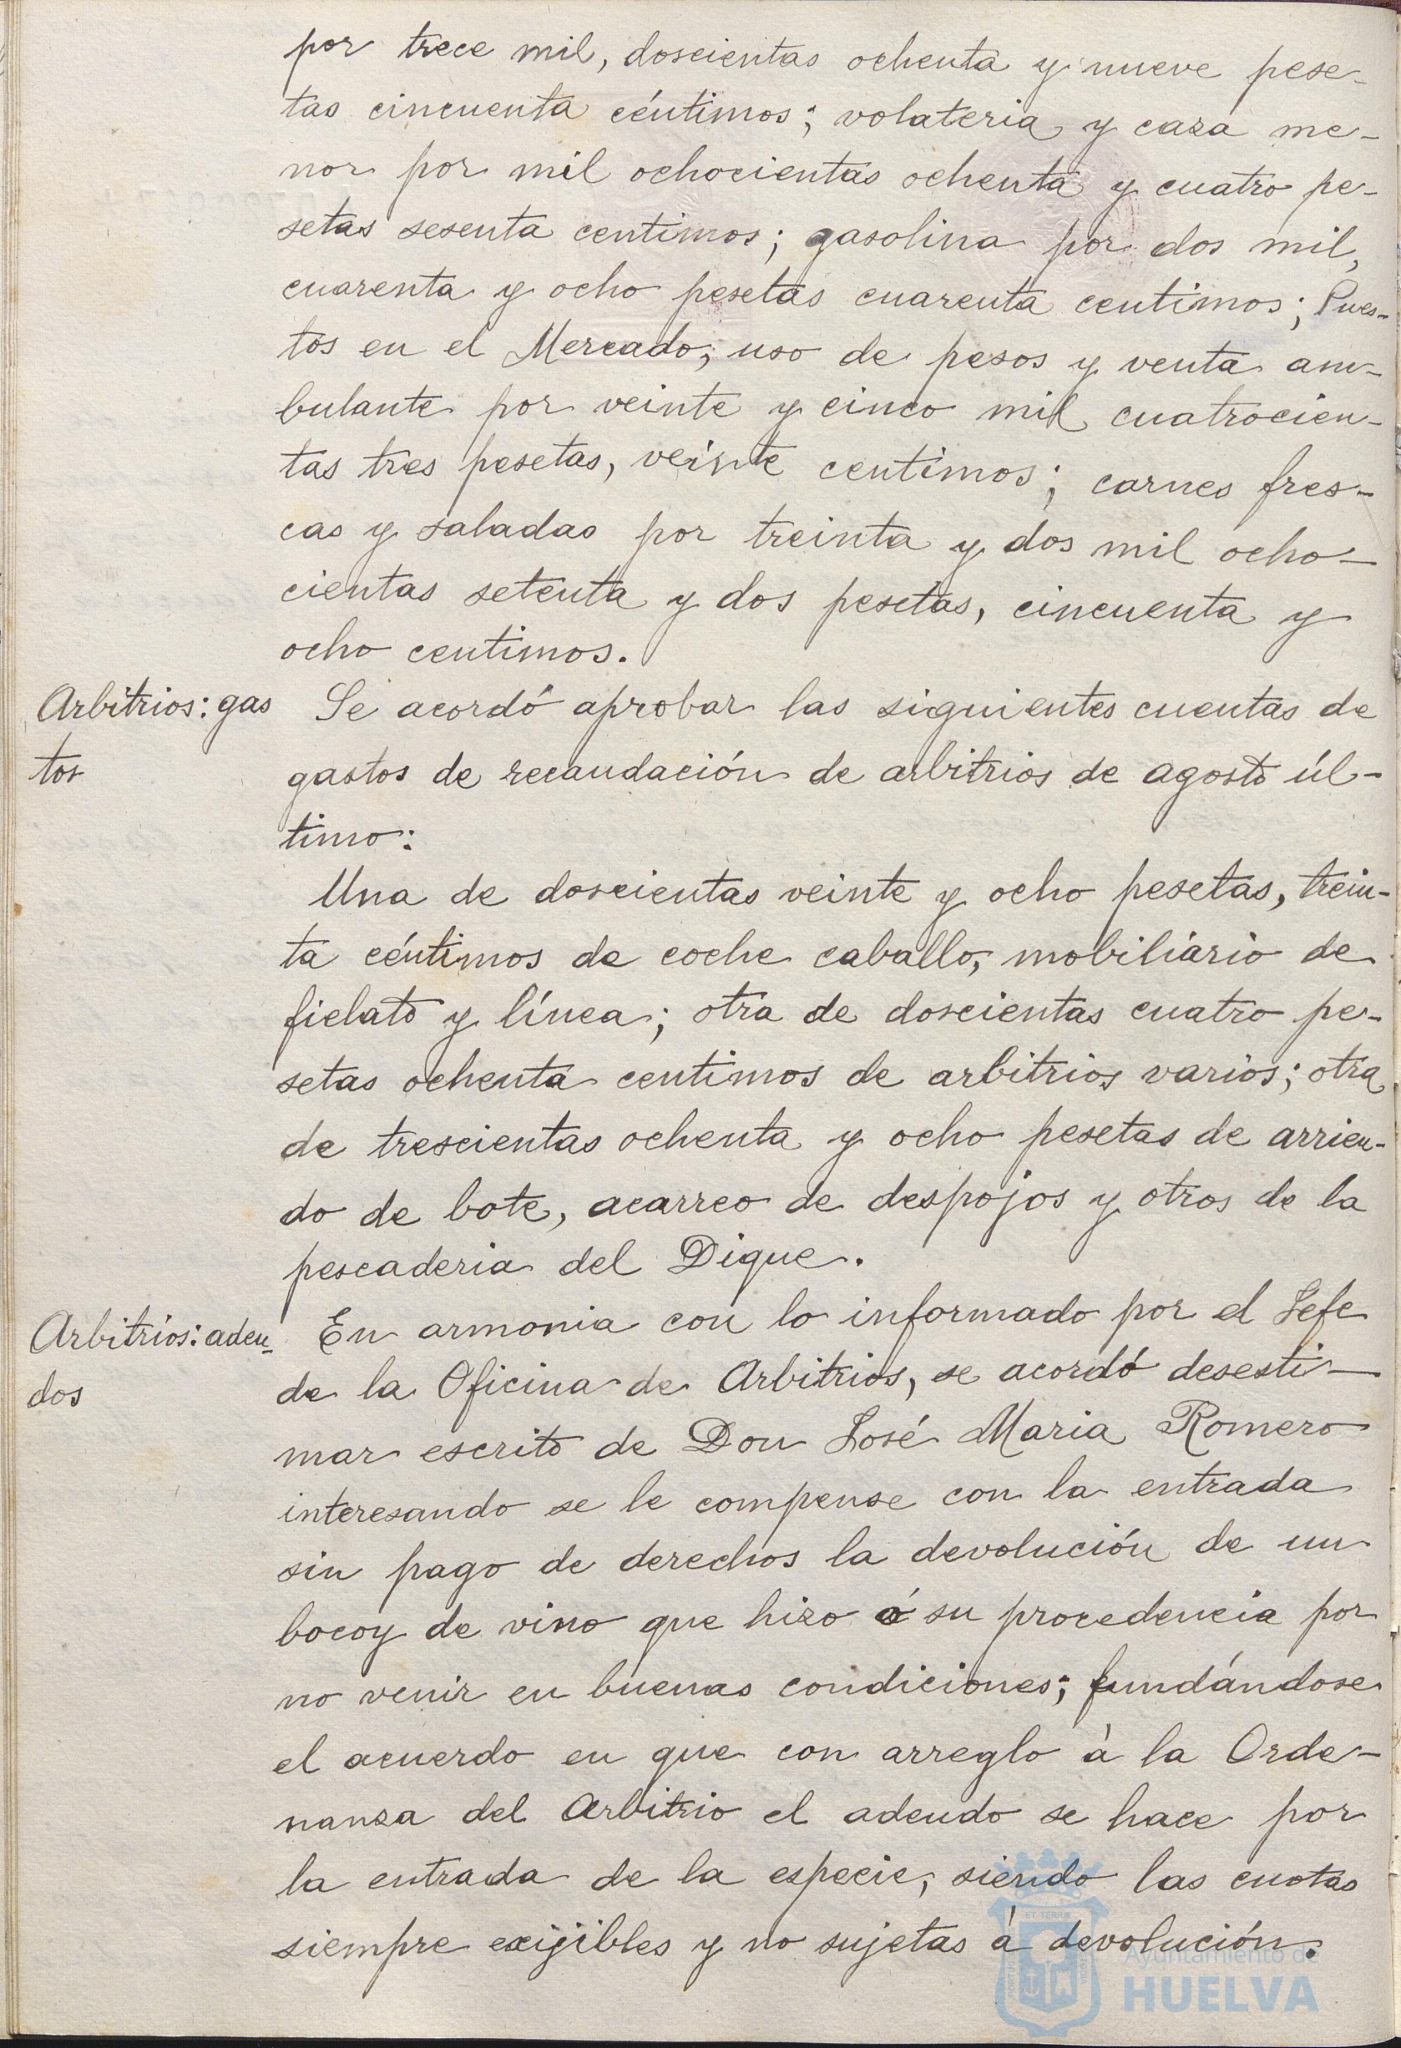 por trece mil, doscientas ochenta y nueve pese-
tas cincuenta céntimos; volateria y caza me-
nor por mil ochocientas ochenta y cuatro pe-
setas sesenta centimos; gasolina por dos mil,
cuarenta y ocho pesetas cuarenta centimos; Pues-
tos en el Mercado, uso de pesos y venta am-
bulante por veinte y cinco mil cuatrocien-
tas tres pesetas, veinte centimos; carnes fres-
cas y saladas por treinta y dos mil ocho-
cientas setenta y dos pesetas, cincuenta y
ocho centimos.
Arbitrios: gas
tos
Se acordó aprobar las siguientes cuentas de
gastos de recaudación de arbitrios de agosto úl-
timo:
Una de doscientas veinte y ocho pesetas, trein-
ta céntimos de coche caballo, mobiliario de
fielato y línea; otra de doscientas cuatro pe-
setas ochenta centimos de arbitrios varios; otra
de trescientas ochenta y ocho pesetas de arrien-
do de bote, acarreo de despojos y otros de la
pescaderia del Dique.
Arbitrios: aden-
dos
En armonia con lo informado por el Jefe
de la Oficina de Arbitrios, se acordó desesti-
mar escrito de Don José Maria Romero
interesando se le compense con la entrada
sin pago de derechos la devolución de un
bocoy de vino que hizo á su procedencia por
no venir en buenas condiciones; fundándose
el acuerdo en que con arreglo à la Orde-
nanza del Arbitrio el adeudo se hace por
la entrada de la especie, siendo las cuotas
siempre exijibles y no sujetas á devolución.
Ayuntamiento de
HUELVA